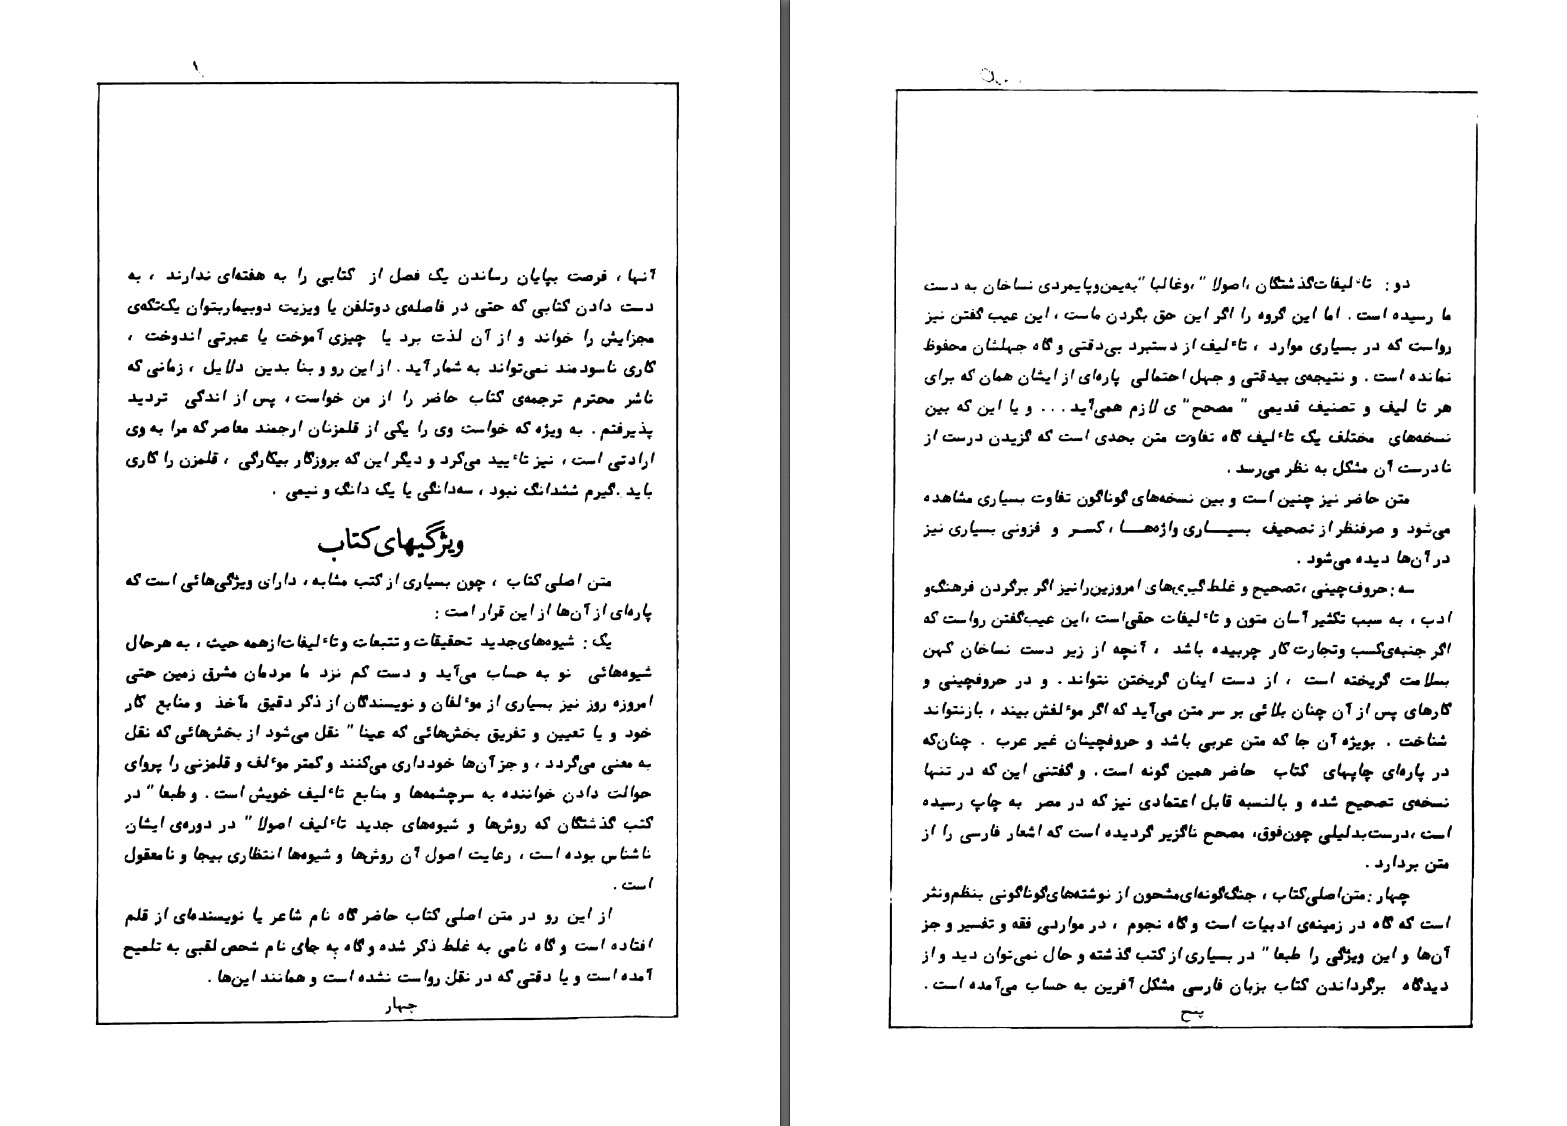 آنها ، فرصت بپایان رساندن یک فصل از کتابی را به هفته‌ای ندارند ، به
دست دادن کتابی که حتی در فاصله‌ی دوتلفن یا ویزیت دوبیماربتوان یک‌تکه‌ی
مجزایش را خواند و از آن لذت برد یا چیزی آموخت یا عبرتی اندوخت ،
کاری ناسودمند نمی‌تواند به شمار آید . از این رو و بنا بدین دلایل ، زمانی که
ناشر محترم ترجمه‌ی کتاب حاضر را از من خواست ، پس از اندکی تردید
پذیرفتم . به ویژه که خواست وی را یکی از قلمزنان ارجمند معاصر که مرا به وی
ارادتی است ، نیز تاٴیید می‌کرد و دیگر این که بروزگار بیکارگی ، قلمزن را کاری
باید .گیرم ششدانگ نبود ، سه‌دانگی یا یک دانگ و نیمی .
ویژگیهای کتاب
متن اصلی کتاب ، چون بسیاری از کتب مشابه ، دارای ویژگی‌هائی است که
پاره‌ای از آن‌ها از این قرار است :
یک : شیوه‌های‌جدید تحقیقات و تتبعات و تاٴلیفات‌ازهمه حیث ، به هرحال
شیوه‌هائی نو به حساب می‌آید و دست کم نزد ما مردمان مشرق زمین حتی
امروزه روز نیز بسیاری از موٴلفان و نویسندگان از ذکر دقیق مآخذ و منابع کار
خود و یا تعیین و تفریق بخش‌هائی که عینا " نقل می‌شود از بخش‌هائی که نقل
به معنی می‌گردد ، و جز آن‌ها خودداری می‌کنند و کمتر موٴلف و قلمزنی را پروای
حوالت دادن خواننده به سرچشمه‌ها و منابع تاٴلیف خویش است . و طبعا " در
کتب گذشتگان که روش‌ها و شیوه‌های جدید تاٴلیف اصولا " در دوره‌ی ایشان
ناشناس بوده است ، رعایت اصول آن روش‌ها و شیوه‌ها انتظاری بیجا و نامعقول
است .
از این رو در متن اصلی کتاب حاضر گاه نام شاعر یا نویسنده‌ای از قلم
افتاده است و گاه نامی به غلط ذکر شده و گاه به جای نام شخص لقبی به تلمیح
آمده است و یا دقتی که در نقل رواست نشده است و همانند این‌ها .
چهار
دو : تاٴلیفات‌گذشتگان ،اصولا " ،وغالبا "به‌یمن‌وپایمردی نساخان به دست
ما رسیده است . اما این گروه را اگر این حق بگردن ماست ، این عیب گفتن نیز
رواست که در بسیاری موارد ، تاٴلیف از دستبرد بی‌دقتی و گاه جهلشان محفوظ
نمانده است . و نتیجه‌ی بیدقتی و جهل احتمالی پاره‌ای از ایشان همان که برای
هر تا لیف و تصنیف قدیمی " مصحح" ی لازم همی‌آید . . . و یا این که بین
نسخه‌های مختلف یک تاٴلیف گاه تفاوت متن بحدی است که گزیدن درست از
نادرست آن مشکل به نظر می‌رسد .
متن حاضر نیز چنین است و بین نسخه‌های گوناگون تفاوت بسیاری مشاهده
می‌شود و صرفنظر از تصحیف بسیـــاری واژه‌هــا ، کسـر و فزونی بسیاری نیز
در آن‌ها دیده می‌شود .
سه :حروف‌چینی ،تصحیح و غلط گیری‌های امروزین‌رانیز اگر برگردن فرهنگ‌و
ادب ، به سبب تکثیر آسان متون و تاٴلیفات حقی‌است ،این عیب‌گفتن رواست که
اگر جنبه‌ی‌کسب وتجارت‌کار چربیده باشد ، آنچه از زیر دست نساخان کهن
بسلامت گریخته است ، از دست اینان گریختن نتواند . و در حروفچینی و
کارهای پس از آن چنان بلائی بر سر متن می‌آید که اگر موٴلفش بیند ، بازنتواند
شناخت . بویژه آن جا که متن عربی باشد و حروفچینان غیر عرب . چنان‌که
در پاره‌ای چاپهای کتاب حاضر همین گونه است . و گفتنی این که در تنها
نسخه‌ی تصحیح شده و بالنسبه قابل اعتمادی نیز که در مصر به چاپ رسیده
است ،درست‌بدلیلی چون‌فوق، مصحح ناگزیر گردیده است که اشعار فارسی را از
متن بردارد .
چهار :متن‌اصلی‌کتاب ، جنگ‌گونه‌ای‌مشحون از نوشته‌های‌گوناگونی بنظم‌ونثر
است که گاه در زمینه‌ی ادبیات است و گاه نجوم ، در مواردی فقه و تفسیر و جز
آن‌ها و این ویژگی را طبعا " در بسیاری از کتب گذشته و حال نمی‌توان دید و از
دیدگاه برگرداندن کتاب بزبان فارسی مشکل آفرین به حساب می‌آمده است .
پنج